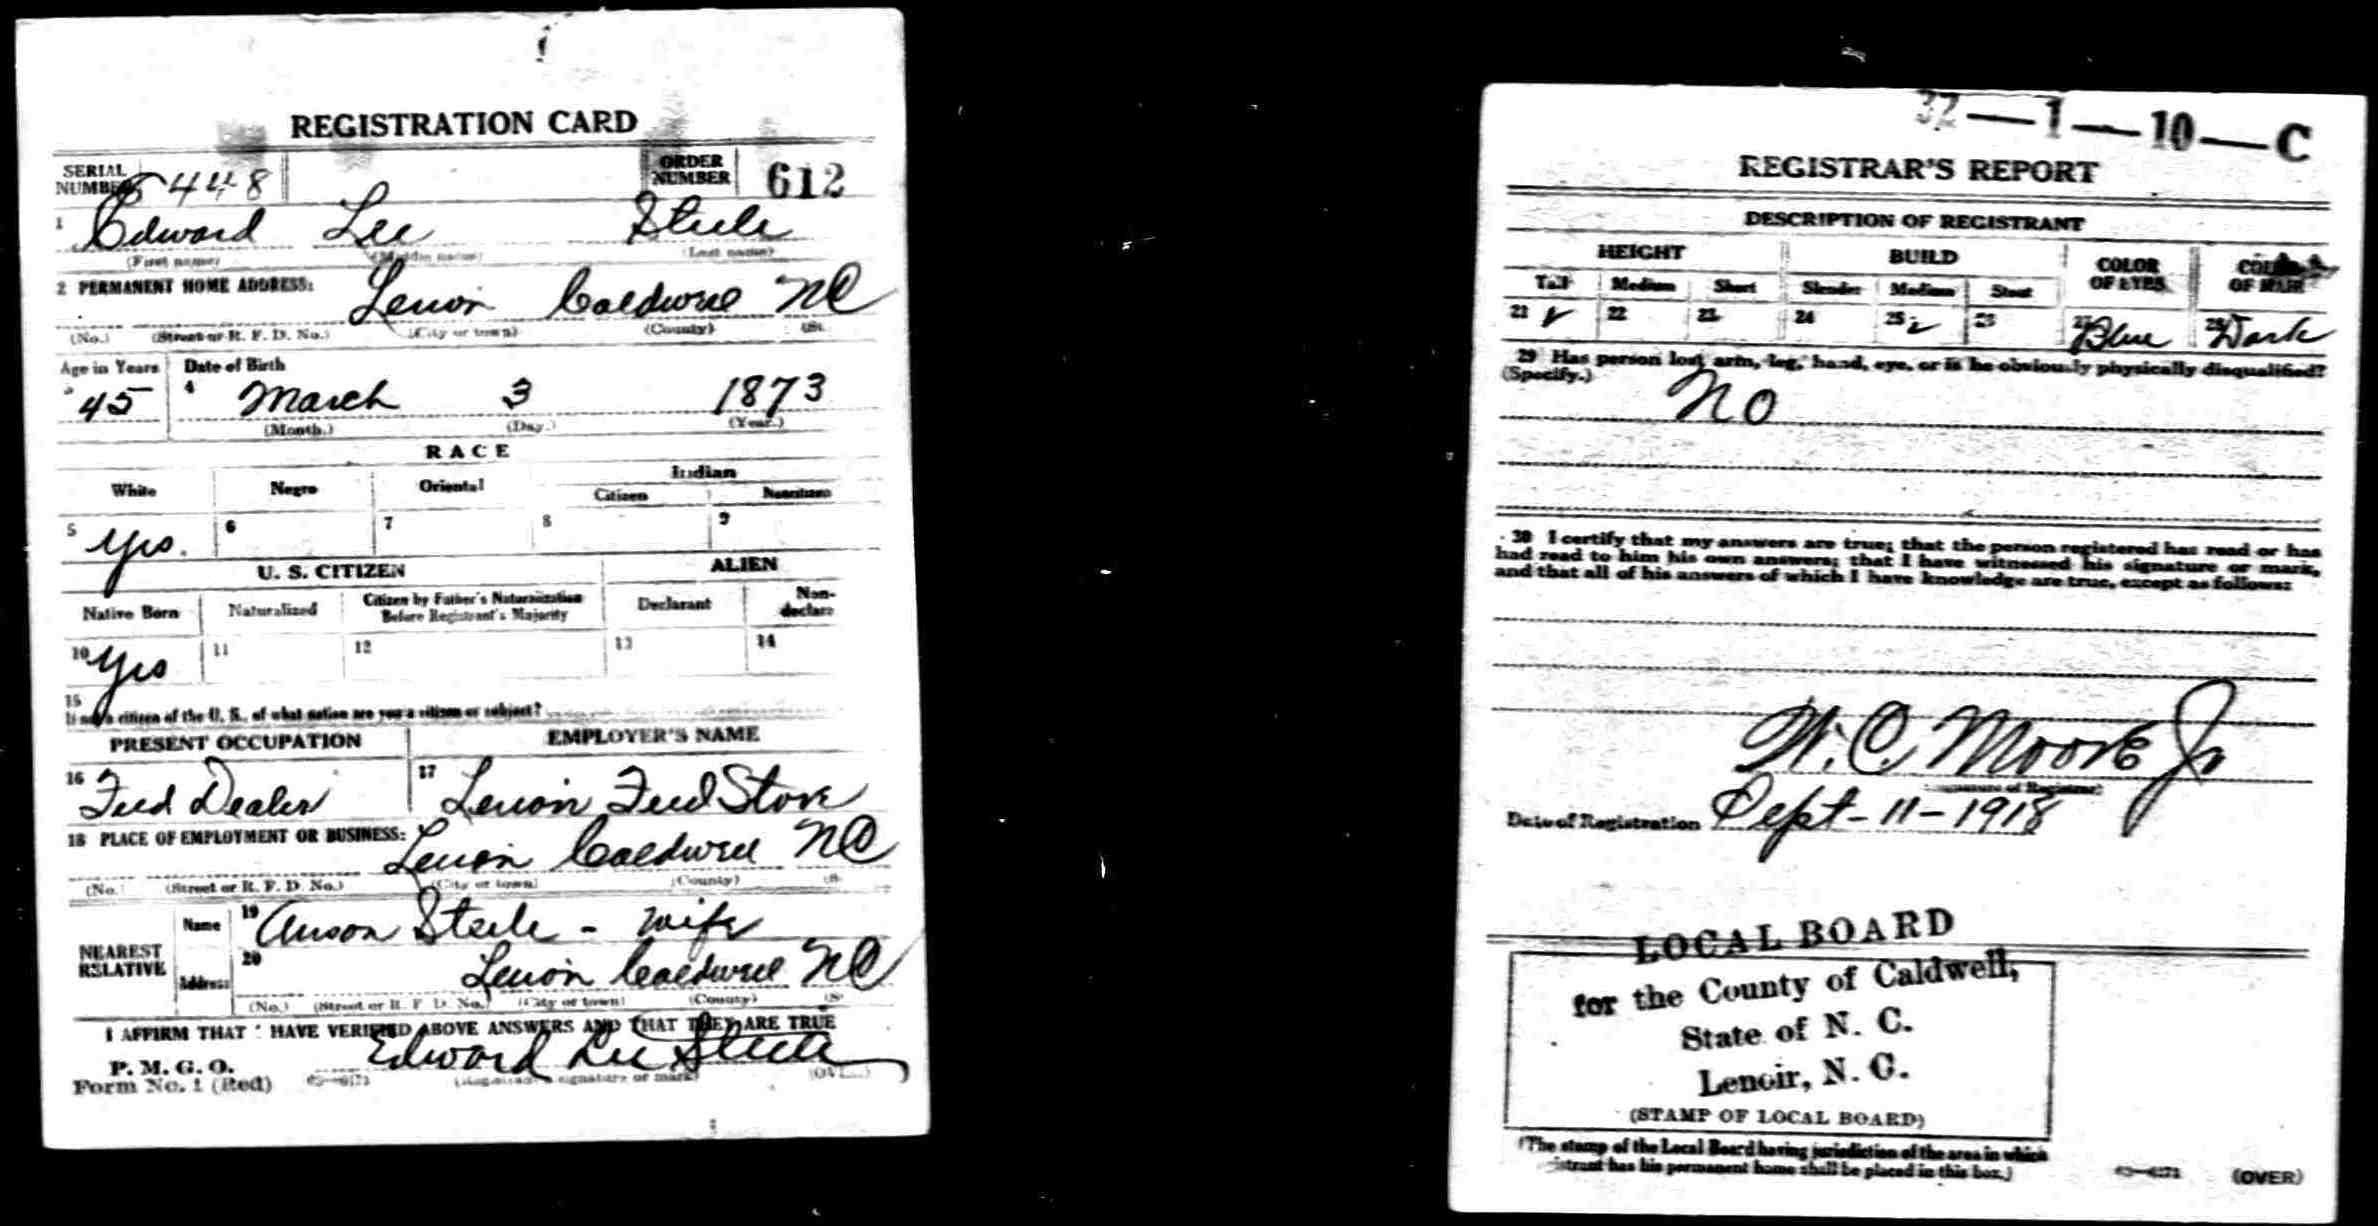 REGISTRATION CARD
SERIAL NUMBER 448 ORDER NUMBER 612
1 Edward Lee Steele
(First name) (Middle name) (Last name)
2 PERMANENT HOME ADDRESS:
Lenoir Caldwell NC
(No.) (Street or R. F. D. No.) (City or town) (County)
Age in Years Date of Birth
45 4 March 3 1873
(Month.) (Day.) (Year.)
RACE
White Negro Oriental Indian
Citizen Noncitizen
5 Yes. 6 7 8 9
U. S. CITIZEN ALIEN
Native Born Naturalized Citizen by Father's Naturalization Before Registrant's Majority Declarant Non-declarant
10 Yes 11 12 13 14
15
If not a citizen of the U. S., of what nation are you a citizen or subject?
PRESENT OCCUPATION EMPLOYER'S NAME
16 Feed Dealer 17 Lenoir Feed Store
18 PLACE OF EMPLOYMENT OR BUSINESS:
Lenoir Caldwell NC
(No.) (Street or R. F. D. No.) (City or town) (County)
NEAREST RELATIVE Name 19 Anson Steele - wife
Address 20 Lenoir Caldwell NC
(No.) (Street or R. F. D. No.) (City or town) (County)
I AFFIRM THAT I HAVE VERIFIED ABOVE ANSWERS AND THAT THEY ARE TRUE
P. M. G. O.
Form No. 1 (Red) Edward Lee Steele
(Registrant's signature or mark) (OVER)
32—1—10—C
REGISTRAR'S REPORT
DESCRIPTION OF REGISTRANT
HEIGHT BUILD COLOR OF EYES COLOR OF HAIR
Tall Medium Short Slender Medium Stout
21 ✓ 22 23 24 25 ✓ 26 27 Blue 28 Dark
29 Has person lost arm, leg, hand, eye, or is he obviously physically disqualified?
(Specify.)
No
30 I certify that my answers are true; that the person registered has read or has
had read to him his own answers; that I have witnessed his signature or mark,
and that all of his answers of which I have knowledge are true, except as follows:
W. C. Moore Jr
(Signature of Registrar)
Date of Registration Sept-11-1918
LOCAL BOARD
for the County of Caldwell,
State of N. C.
Lenoir, N. C.
(STAMP OF LOCAL BOARD)
(The stamp of the Local Board having jurisdiction of the area in which
registrant has his permanent home shall be placed in this box.)
(OVER)